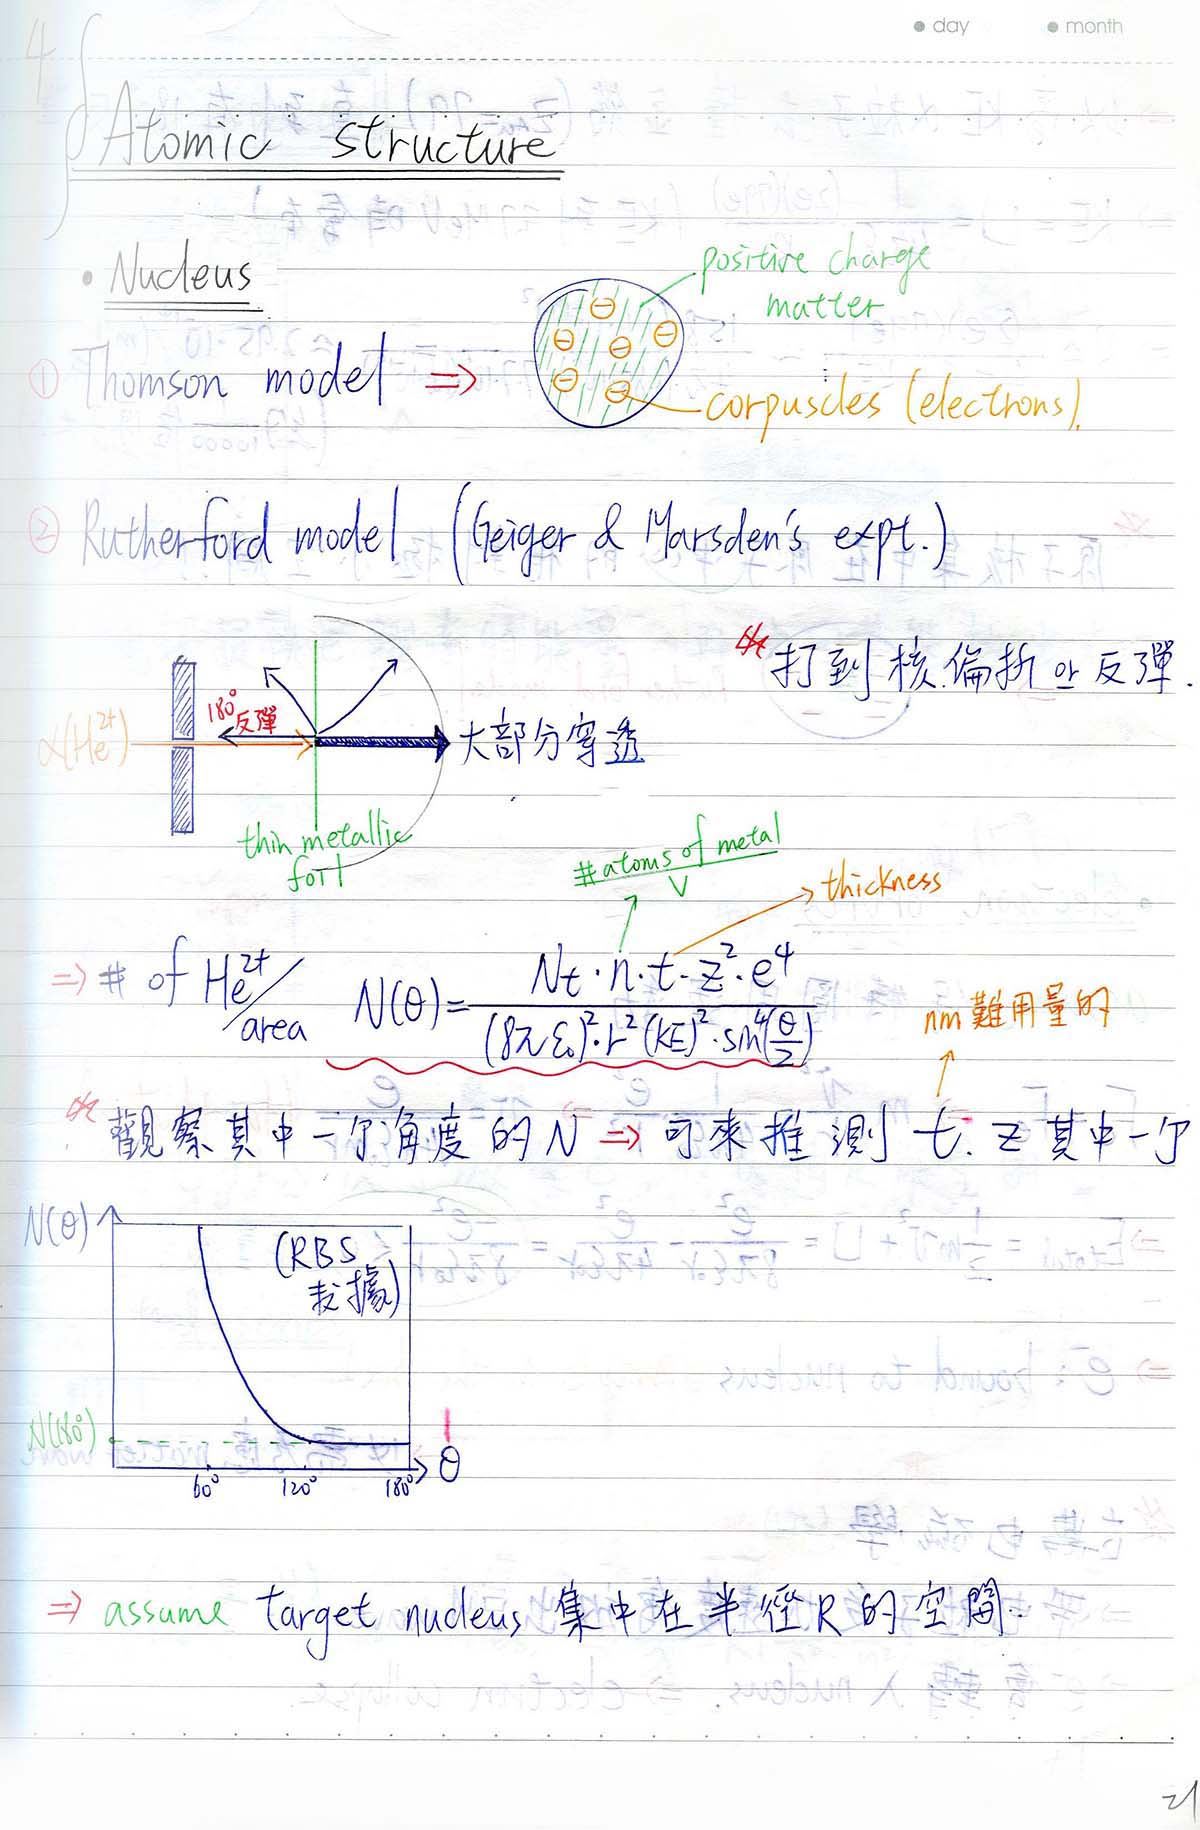 day month
4
Atomic structure
• Nucleus
positive charge
matter
① Thomson model ⇒
corpuscles (electrons).
② Rutherford model (Geiger & Marsden's expt.)
打到核偏折 or 反彈.
180°
反彈
α(He²⁺)
大部分穿透
thin metallic
foil
# atoms of metal
V
thickness
⇒ # of He²⁺/area N(θ) = Nt·n·t·z²·e⁴ / (8πε₀)²·r²(KE)²·sin⁴(θ/2)
nm難用量的
觀察其中一个角度的 N ⇒ 可來推測 t, z 其中一个
N(θ)
(RBS
N(180°)
θ
60° 120° 180°
⇒ assume target nucleus 集中在半徑R的空間.
21